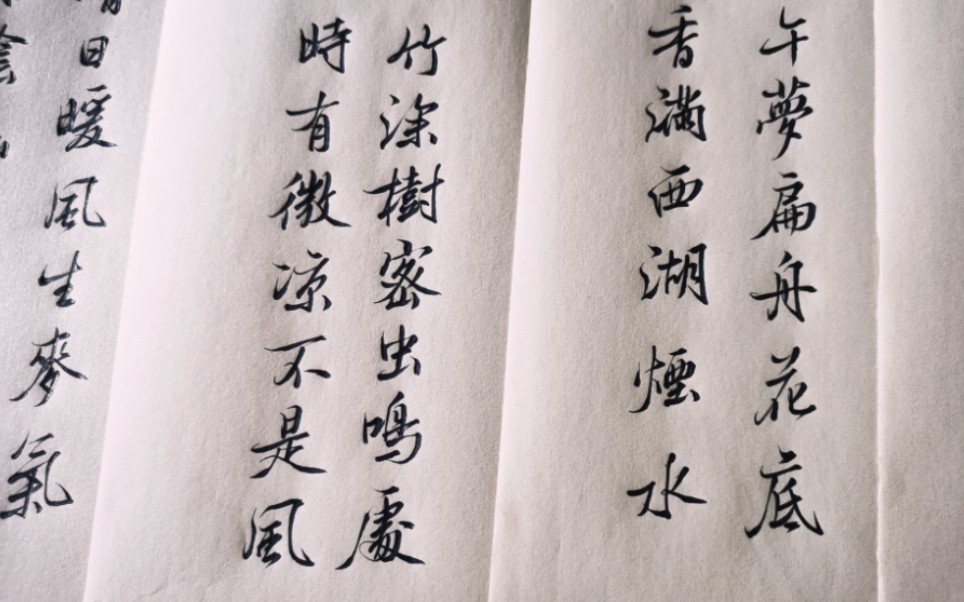 午夢扁舟花底
香滿西湖煙水
竹深樹密虫鳴處
時有微凉不是風
日暖風生麥氣